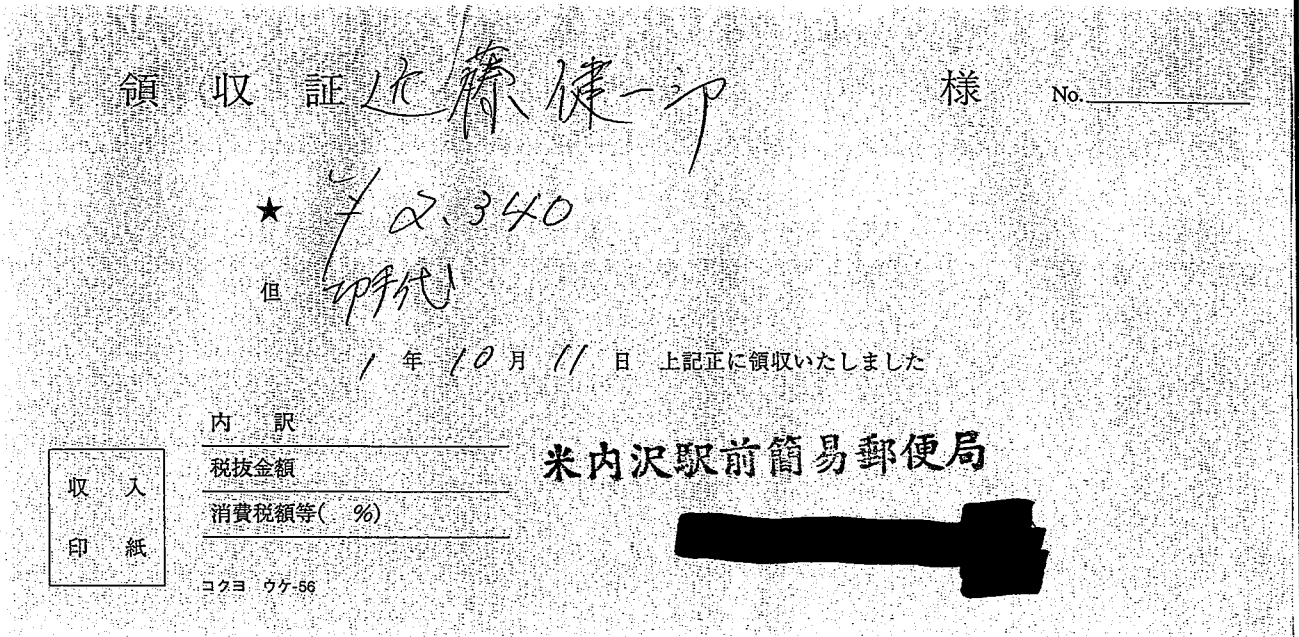 領収証 近藤健一郎 様 No.
★ ¥2,340
但 切手代
1年10月11日 上記正に領収いたしました
内訳
税抜金額
消費税額等( %)
収入
印紙
米内沢駅前簡易郵便局
コクヨ ウケ-56